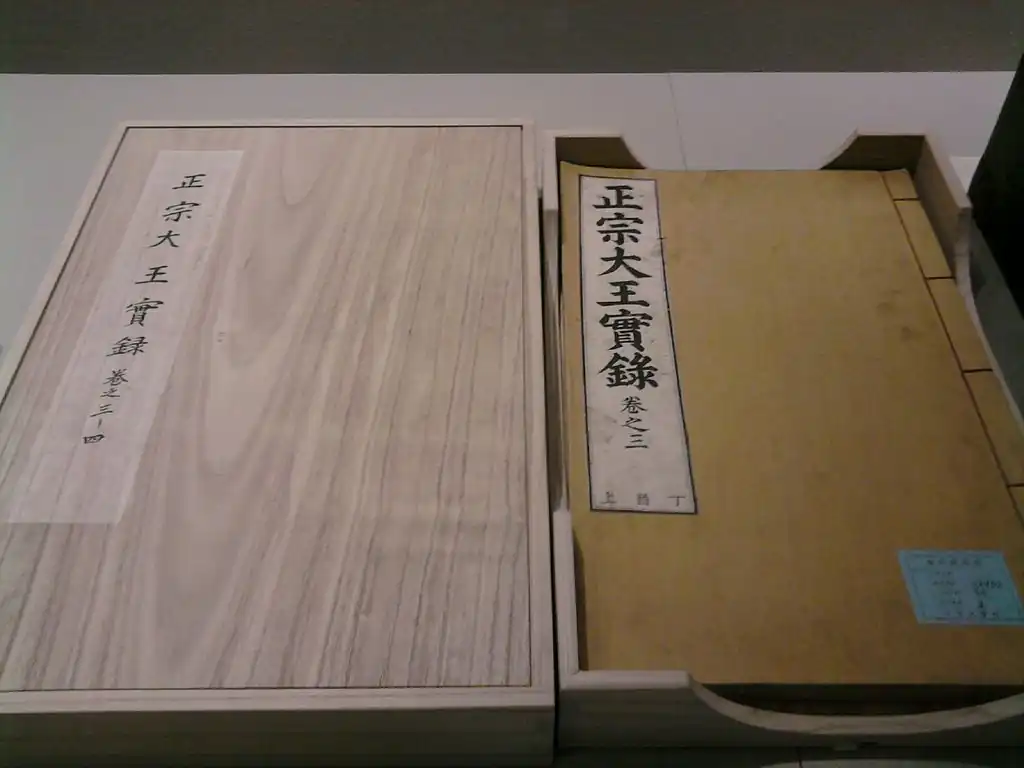 正宗大王實録卷之三-四
正宗大王實錄卷之三
丁酉上